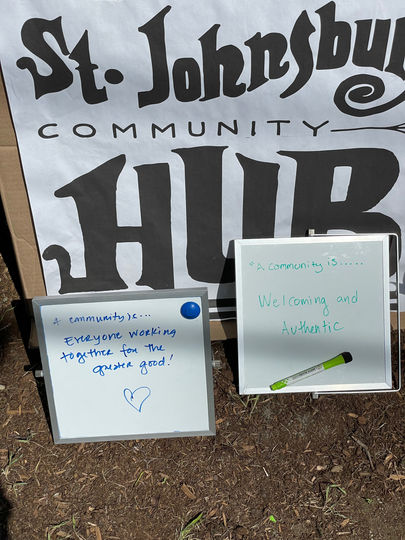 St. Johnsbu
COMMUNITY
HUB
A community is...
Everyone working
together for the
greater good!
*A community is.....
Welcoming and
Authentic